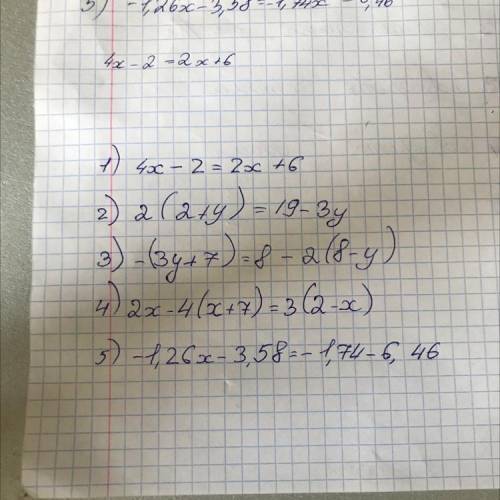 5) -1,26x-3,58=-1,74x-6,46
4x-2=2x+6
1) 4x-2=2x+6
2) 2(2+y)=19-3y
3) -(3y+7)=8-2(8-y)
4) 2x-4(x+7)=3(2-x)
5) -1,26x-3,58=-1,74-6,46